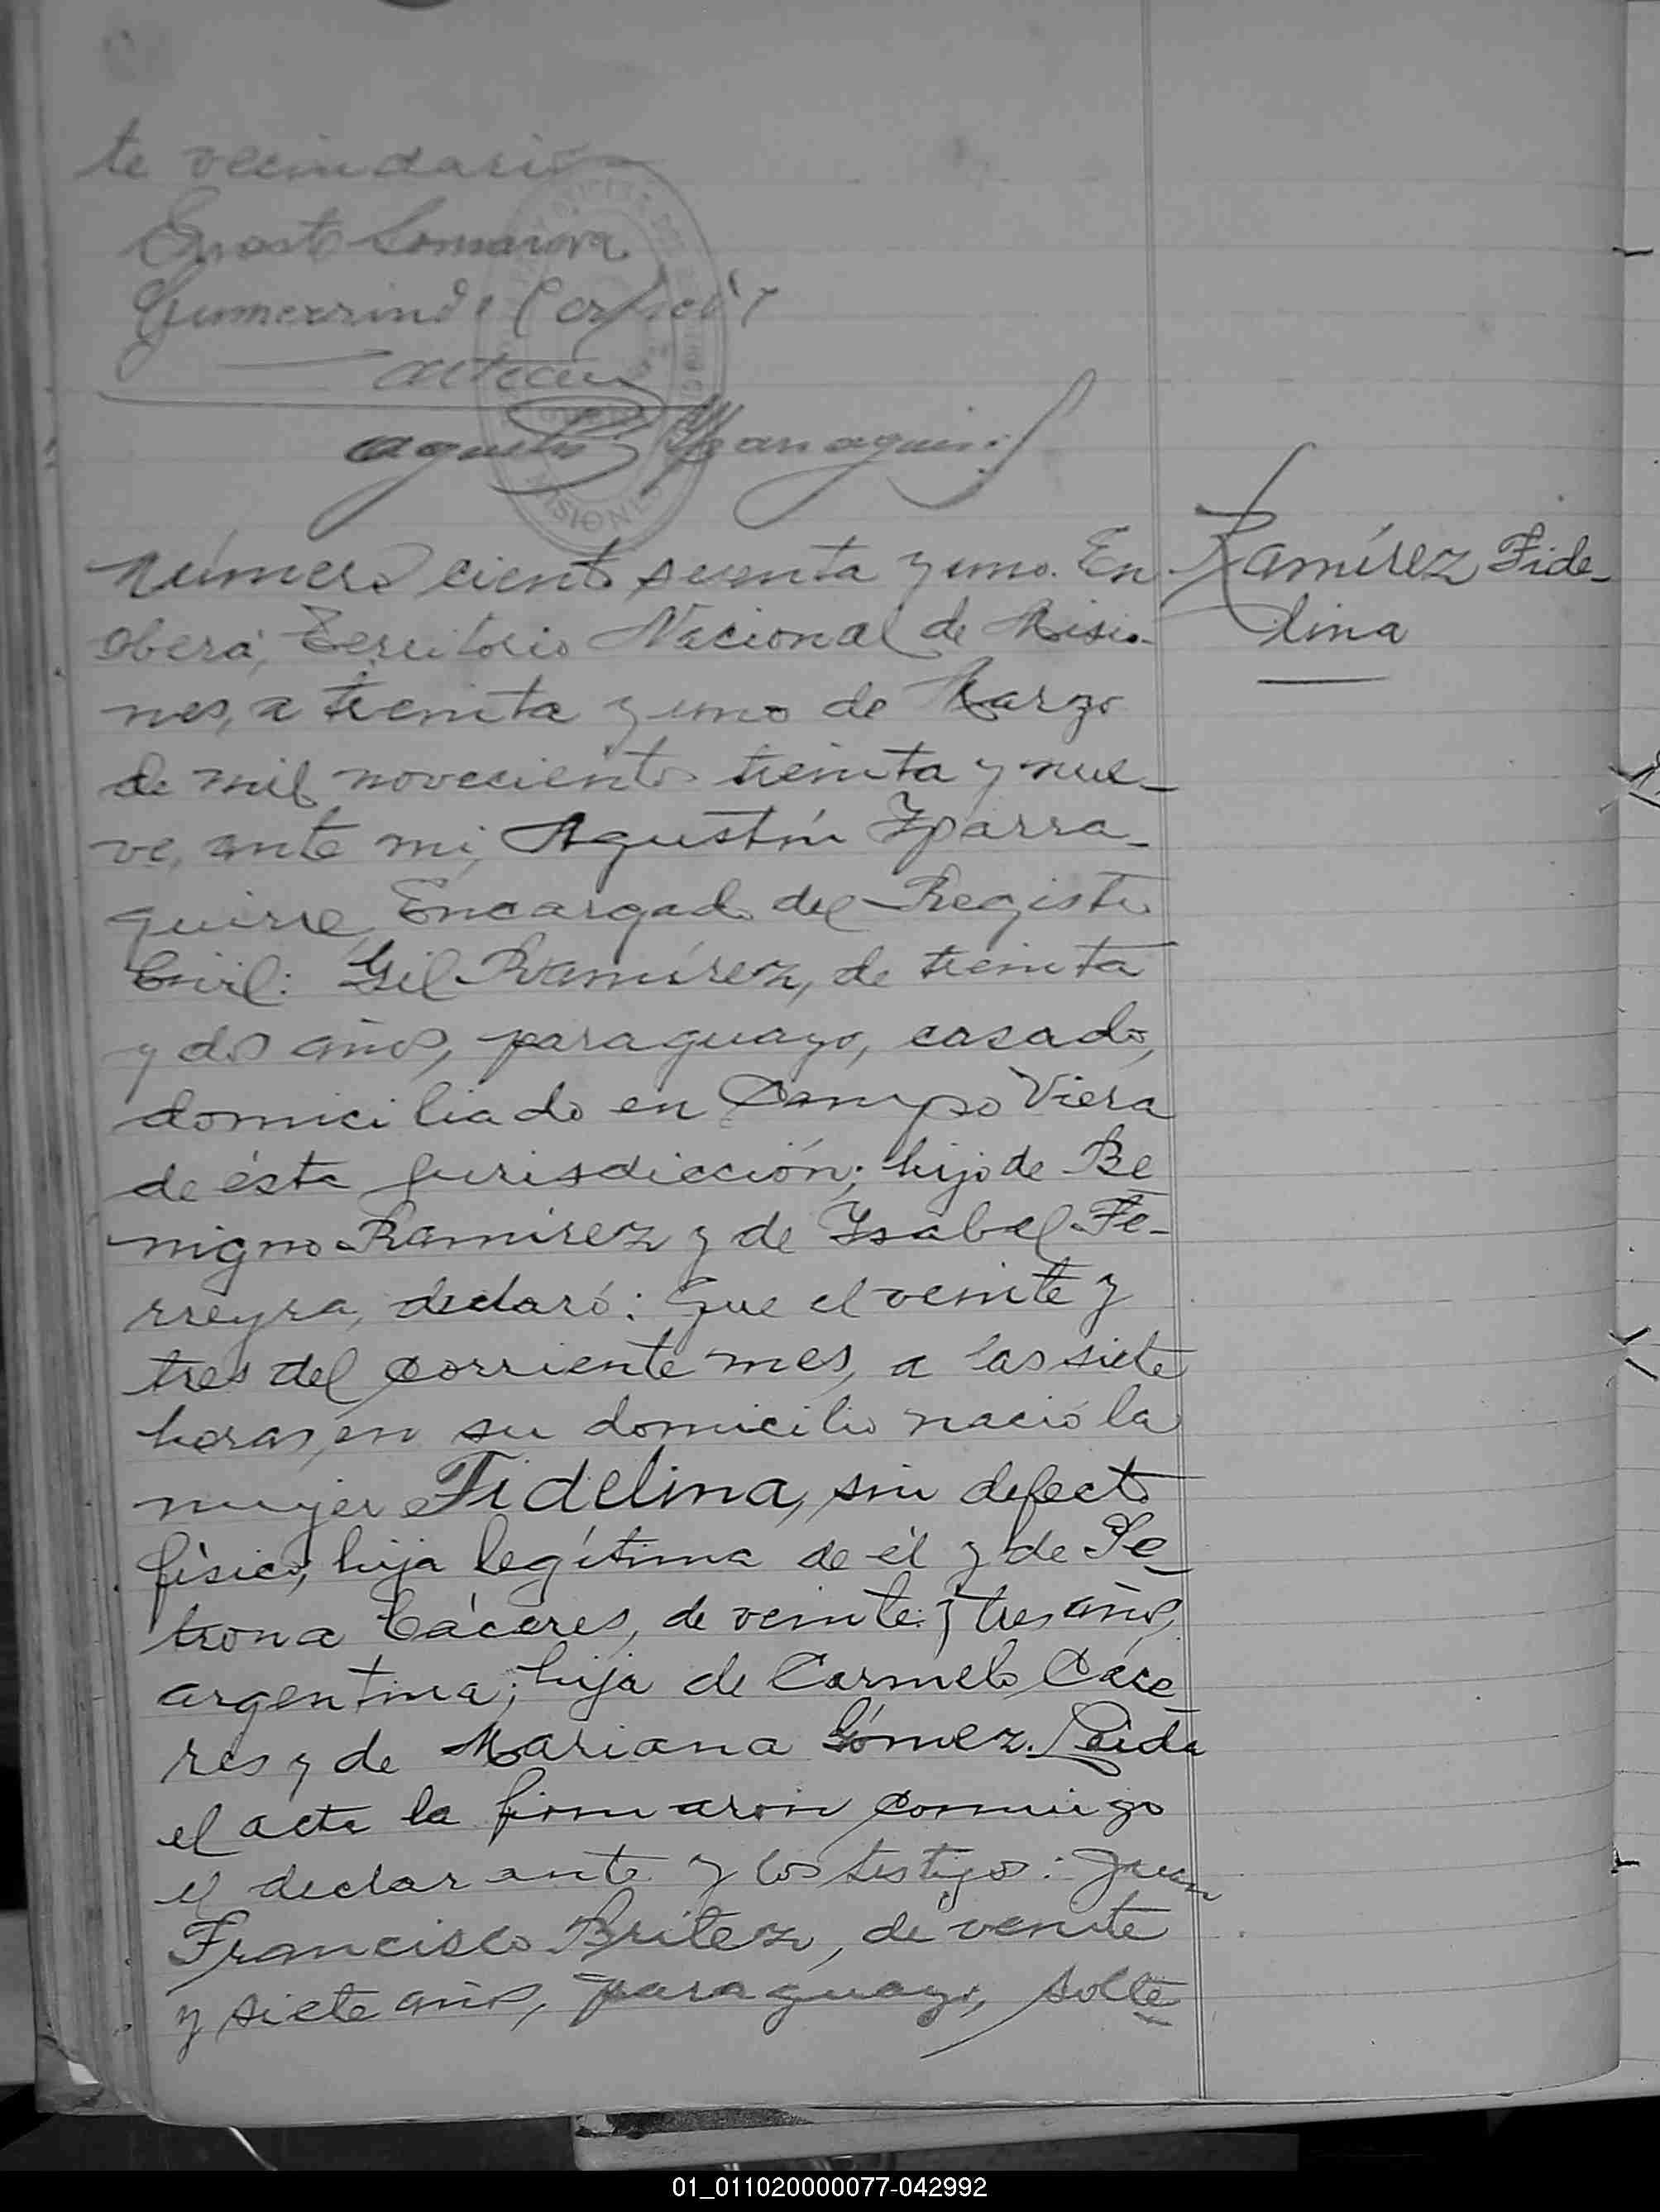 te vecindario
Número ciento sesenta y uno. En
Ramírez Fide-
lina
Oberá, Territorio Nacional de Misio-
nes, a treinta y uno de Marzo
de mil novecientos treinta y nue-
ve, ante mi, Agustín Yparra-
guirre, Encargado del Registro
Civil: Gil Ramírez, de treinta
y dos años, paraguayo, casado,
domiciliado en Campo Viera
de ésta jurisdicción; hijo de Be-
nigno Ramirez y de Ysabel Fe-
rreyra, declaró: Que el veinte y
tres del corriente mes, a las siete
horas, en su domicilio nació la
mujer Fidelina, sin defecto
físico, hija legítima de él y de Pe-
trona Cáceres, de veinte y tres años,
argentina; hija de Carmelo Cáce-
res y de Mariana Gómez. Leida
el acta la firmaron conmigo
el declarante y los testigos: Juan
Francisco Britez, de veinte
y siete años, paraguayo, solte-
01_011020000077-042992